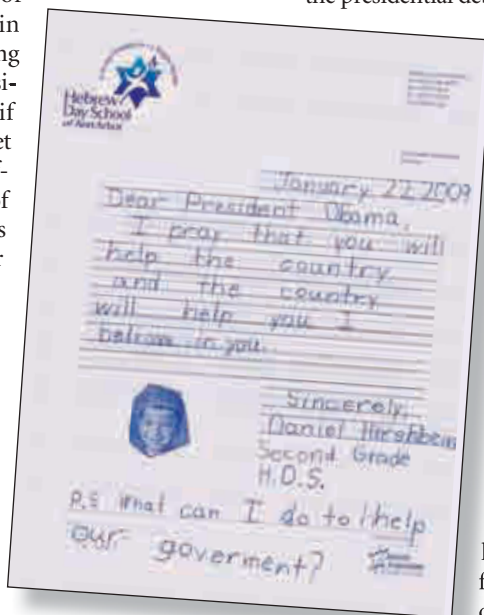 the presidential de
of
in
ng
si-
if
et
f-
of
s
r
Hebrew
Day School
of Ann Arbor
January 22 2009
Dear President Obama,
I pray that you will
help the country
and the country
will help you I
beleive in you.
Sincerely,
Daniel Hirshbein
Second Grade
H.D.S.
P.S What can I do to help
our goverment?
f